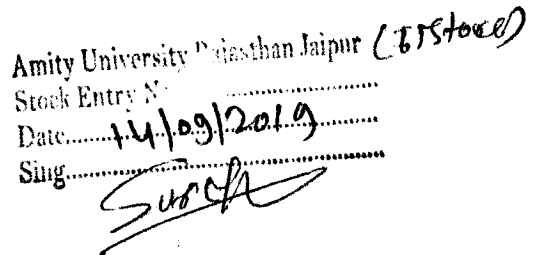 Amity University Rajasthan Jaipur
Stock Entry
Date........14/09/2019
Sing........